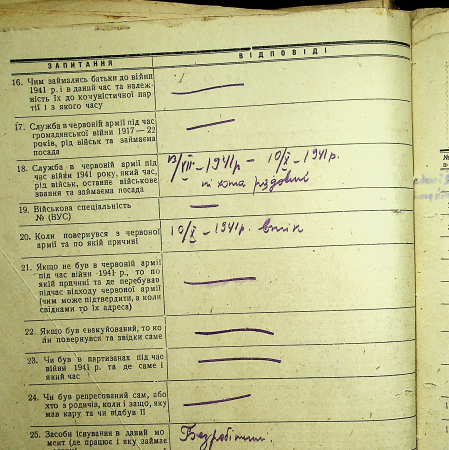 ЗАПИТАННЯ
ВІДПОВІДІ
16. Чим займались батьки до війни
1941 р. і в даний час та належ-
ність їх до комуністичної пар-
тії і з якого часу
17. Служба в червоній армії під час
громадянської війни 1917—22
років, рід військ та займаєма
посада
18. Служба в червоній армії під
час війни 1941 року, який час,
рід військ, останне військове
звання та займаєма посада
13/VIII — 1941 р — 10/X — 1941 р.
піхота рядовий
19. Військова спеціальність
№ (ВУС)
20. Коли повернувся з червоної
армії та по якій причині
10/X — 1941 р. втік
21. Якщо не був в червоній армії
під час війни 1941 р., то по
якій причині та де перебував
підчас відходу червоної армії
(чим може підтвердити, а коли
свідками то їх адреса)
22. Якщо був евакуйований, то ко-
ли повернувся та звідки саме
23. Чи був в партизанах під час
війни 1941 р. та де саме і
який час
24. Чи був репресований сам, або
хто з родичів, коли і защо, яку
мав кару та чи відбув її
25. Засоби існування в даний мо-
мент (де працює і яку займає
Безробітний